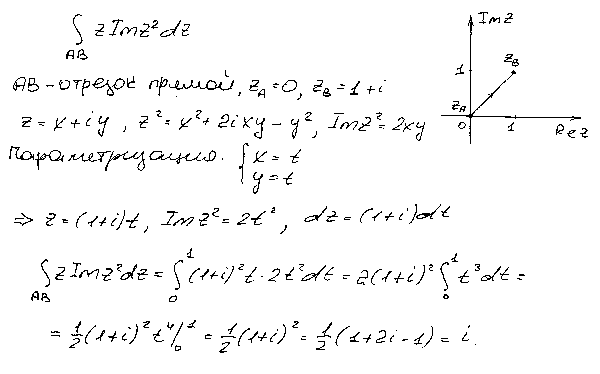 ∫ z Im z² dz
AB
AB - отрезок прямой, z_A = 0, z_B = 1 + i
z = x + iy , z² = x² + 2ixy - y², Im z² = 2xy
Параметризация. { x = t
y = t
⇒ z = (1+i)t, Im z² = 2t², dz = (1+i)dt
∫_AB z Im z² dz = ∫₀¹ (1+i)² t · 2t² dt = 2(1+i)² ∫₀¹ t³ dt =
= 1/2 (1+i)² t⁴ |₀¹ = 1/2 (1+i)² = 1/2 (1 + 2i - 1) = i.
Im z
1
z_B
z_A
0 1 Re z